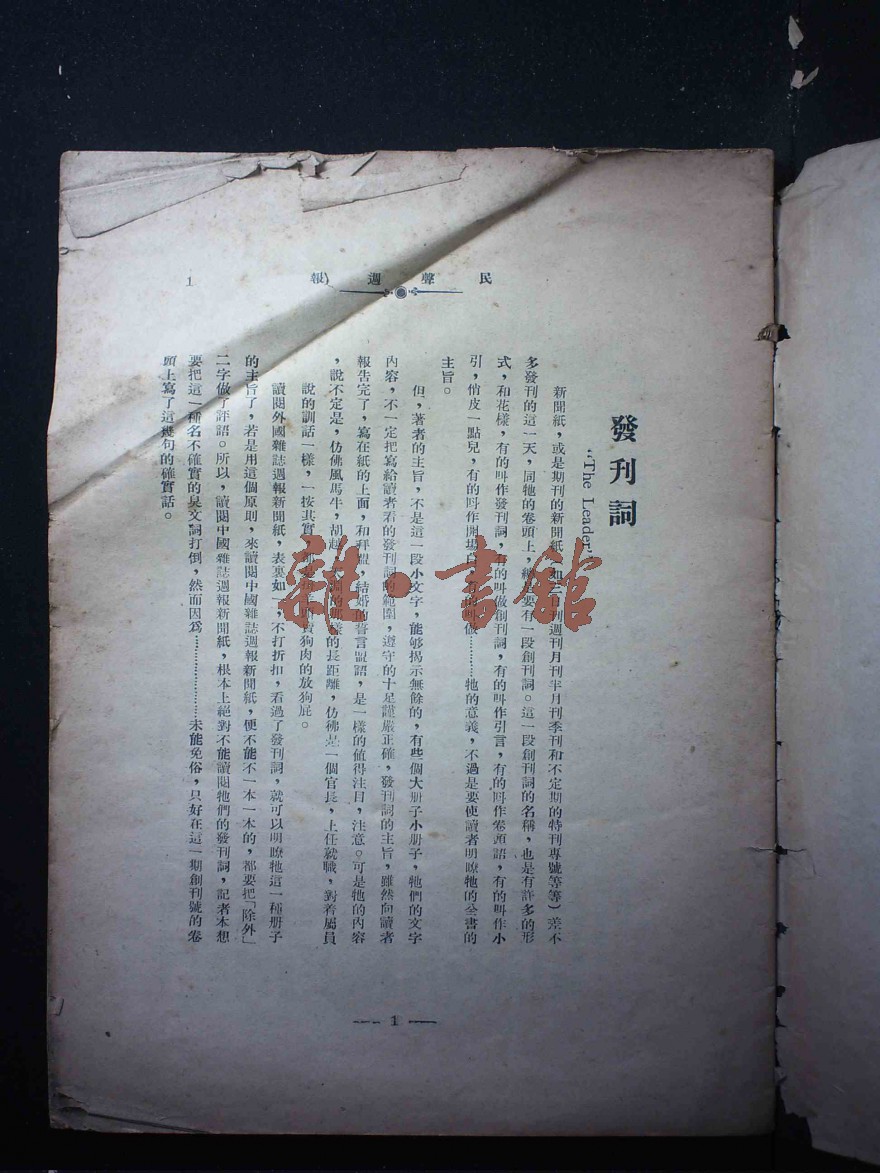 民聲週報
1
發刊詞
"The Leader"
新聞紙，或是期刊的新聞紙（如三日刊週刊月刊半月刊季刊和不定期的特刊專號等等）差不
多發刊的這一天，同牠的卷頭上，總是要有一段創刊詞。這一段創刊詞的名稱，也是有許多的形
式，和花樣，有的叫作發刊詞，有的叫做創刊詞，有的叫作引言，有的叫作卷頭語，有的叫作小
引，俏皮一點兒，有的叫作開場白，有的叫做………牠的意義，不過是要使讀者明瞭牠的全書的
主旨。
但，著者的主旨，不是這一段小文字，能够揭示無餘的，有些個大册子小册子，牠們的文字
內容，不一定把寫給讀者看的發刊詞的範圍，遵守的十足謹嚴正確，發刊詞的主旨，雖然向讀者
報告完了，寫在紙的上面，和拜盟，結婚的誓言盟語，是一樣的値得注目，注意。可是牠的內容
，說不定是，仿佛風馬牛，胡越，的那樣的長距離，仿佛是一個官長，上任就職，對着屬員
說的訓話一樣，一按其實，賣狗肉的放狗屁。
讀閱外國雜誌週報新聞紙，表裏如一，不打折扣，看過了發刊詞，就可以明瞭牠這一種册子
的主旨了，若是用這個原則，來讀閱中國雜誌週報新聞紙，便不能不一本一本的，都要把「除外」
二字做了評語。所以，讀閱中國雜誌週報新聞紙，根本上絕對不能讀閱牠們的發刊詞，記者本想
要把這一種名不確實的具文詞打倒，然而因爲………………未能免俗，只好在這一期創刊號的卷
頭上寫了這幾句的確實話。
1
雜·書館